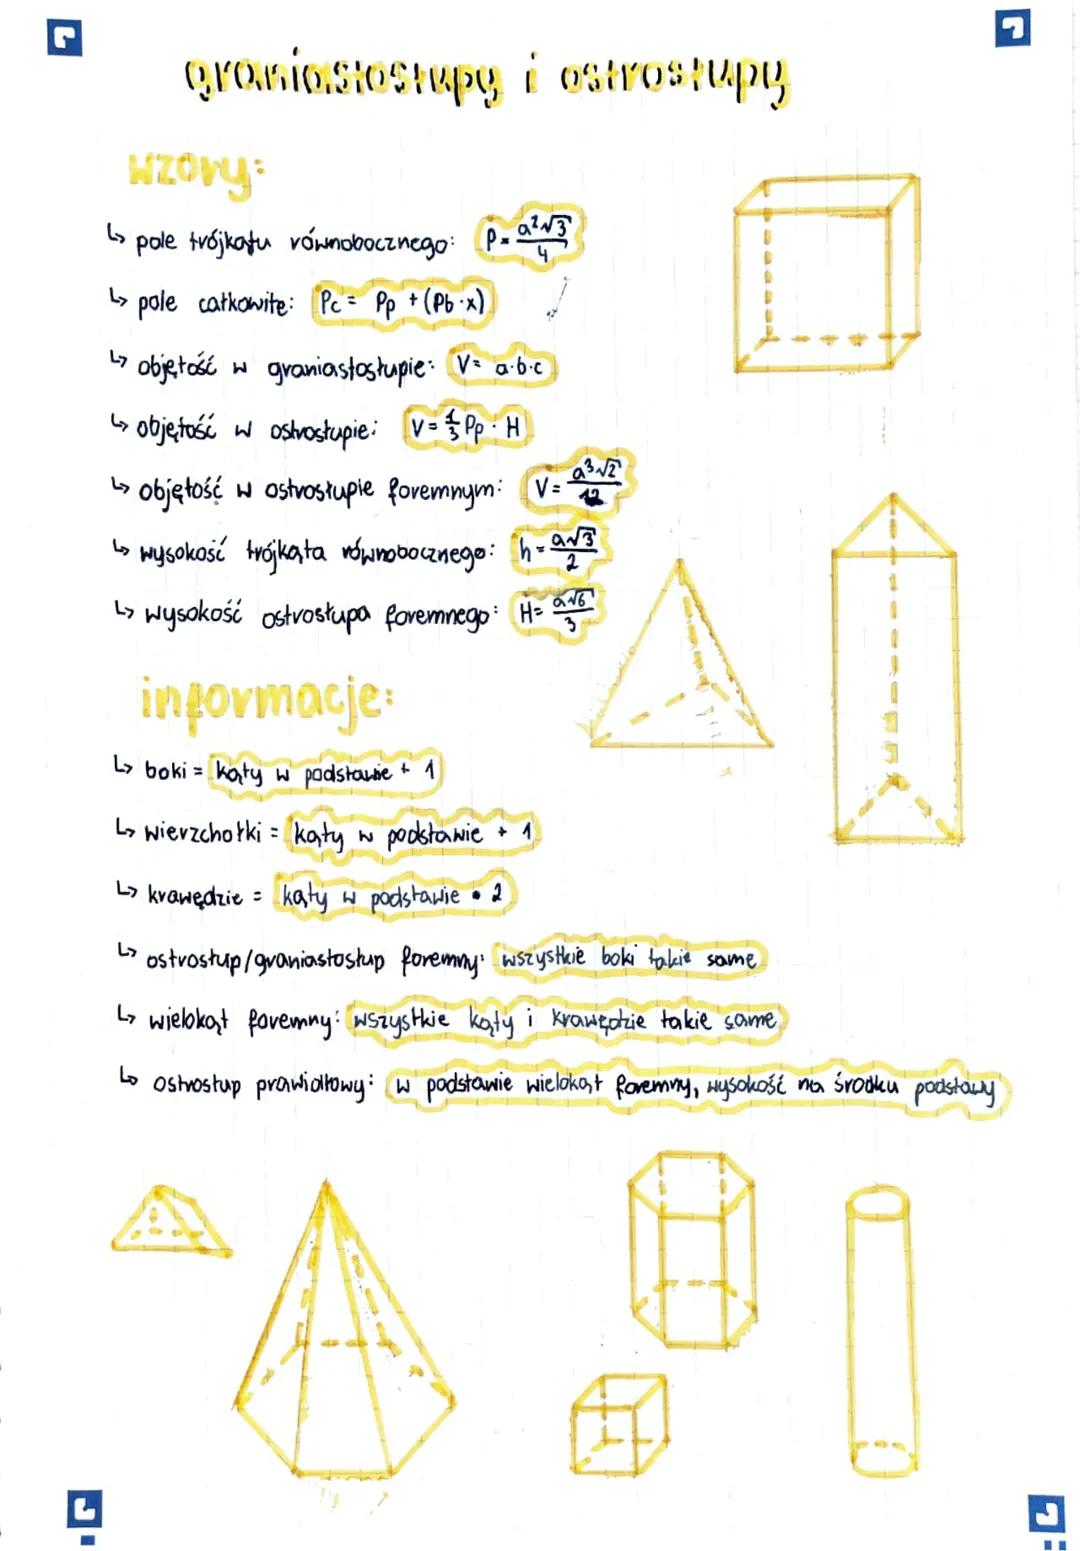 graniastosłupy i ostrosłupy
wzory:
↳ pole trójkątu równobocznego: P = a²√3/4
↳ pole całkowite: Pc = Pp + (Pb · x)
↳ objętość w graniastosłupie: V = a·b·c
↳ objętość w ostrosłupie: V = 1/3 Pp · H
↳ objętość w ostrosłupie foremnym: V = a³√2/12
↳ wysokość trójkąta równobocznego: h = a√3/2
↳ wysokość ostrosłupa foremnego: H = a√6/3
informacje:
↳ boki = kąty w podstawie + 1
↳ wierzchołki = kąty w podstawie + 1
↳ krawędzie = kąty w podstawie • 2
↳ ostrosłup/graniastosłup foremny: wszystkie boki takie same
↳ wielokąt foremny: wszystkie kąty i krawędzie takie same
↳ ostrosłup prawidłowy: w podstawie wielokąt foremny, wysokość na środku podstawy